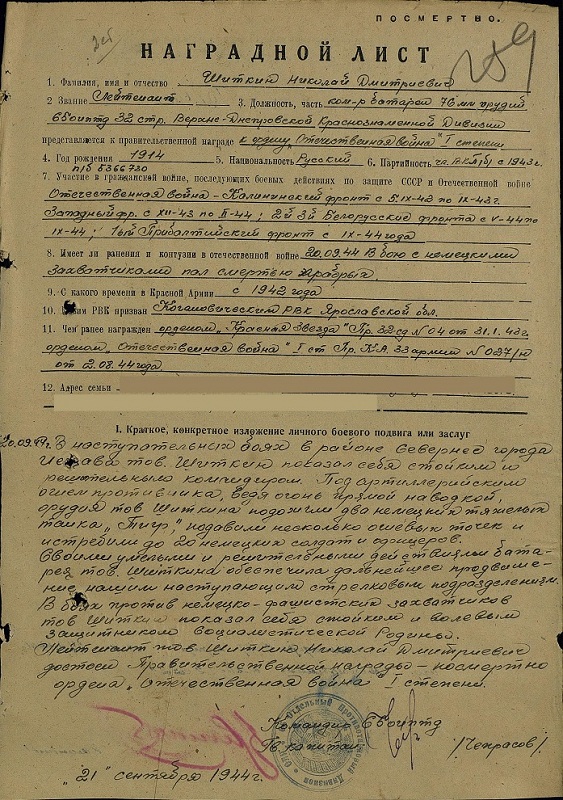 ПОСМЕРТНО.
НАГРАДНОЙ ЛИСТ
1. Фамилия, имя и отчество Шиткин Николай Дмитриевич
2 Звание Лейтенант 3. Должность, часть ком-р батареи 76 мм орудий
32 стр. Верхне-Днепровской Краснознаменной Дивизии
представляется к правительственной награде к ордену „Отечественная война" I степени
4. Год рождения 1914 5. Национальность Русский 6. Партийность чл. ВКП(б) с 1943г.
п/б 5366730
7. Участие в гражданской войне, последующих боевых действиях по защите СССР и Отечественной войне
Отечественная война – Калининский фронт с 5.IX-42 по IX-43г.
Западный фр. с XII-43 по II-44; 2й 3й Белорусские фронта с V-44 по
IX-44; 1ый Прибалтийский фронт с IX-44 года
8. Имеет ли ранения и контузии в отечественной войне 20.09.44 В бою с немецкими
захватчиками пал смертью храбрых
9. С какого времени в Красной Армии с 1942 года
10. Каким РВК призван Кагановическим РВК Ярославской обл.
11. Чем ранее награжден орденом „Красная Звезда" Пр. 32 сд N 04 от 31.1.43г.
орденом „Отечественная война" I ст Пр. К.А. 33 армии N 027/н
от 2.08.44 года
12. Адрес семьи
I. Краткое, конкретное изложение личного боевого подвига или заслуг
20.09.44г. В наступательных боях в районе севернее города
тов. Шиткин показал себя стойким и
решительным командиром. Под артиллерийским
огнем противника, ведя огонь прямой наводкой,
орудия тов Шиткина подожгли два немецких тяжелых
танка „Тигр", подавили несколько огневых точек и
истребили до 20 немецких солдат и офицеров.
Своими умелыми и решительными действиями бата-
рея тов. Шиткина обеспечила дальнейшее продвиже-
ние нашим наступающим стрелковым подразделениям.
В боях против немецко-фашистских захватчиков
тов Шиткин показал себя стойким и волевым
защитником социалистической Родины.
Лейтенант тов Шиткин Николай Дмитриевич
достоин Правительственной награды – посмертно
ордена „Отечественная война" I степени.
Командир
Гв. капитан /Чекрасов/.
„21" сентября 1944г.